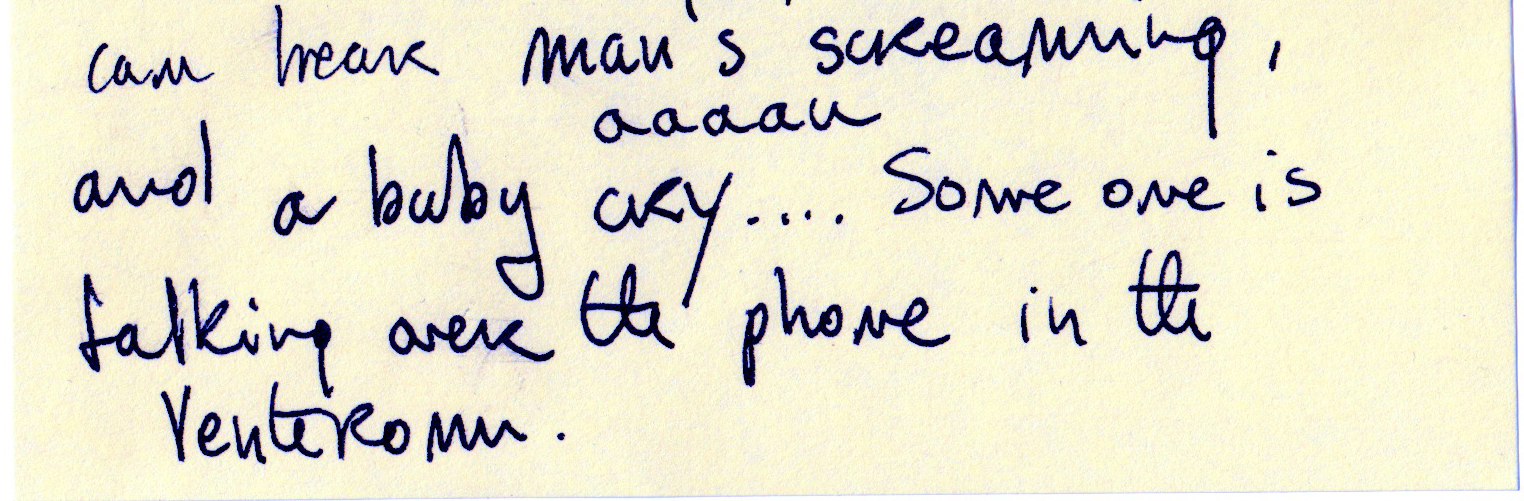 can hear man's screaming,
aaaaa
and a baby cry.... Some one is
talking over the phone in the
Venteromm.